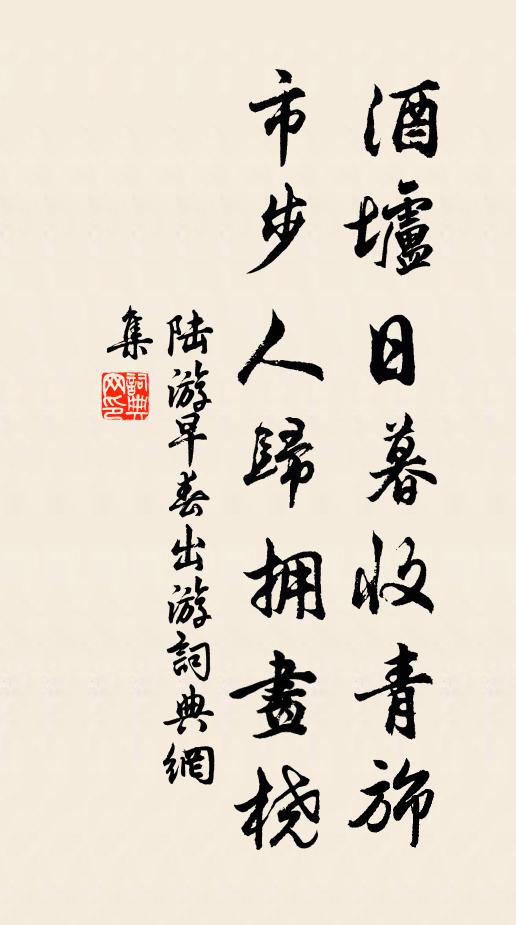 酒壚日暮收青旆
市步人歸擁畫橈
陸游早春出游詞典網
集
詞典
网印